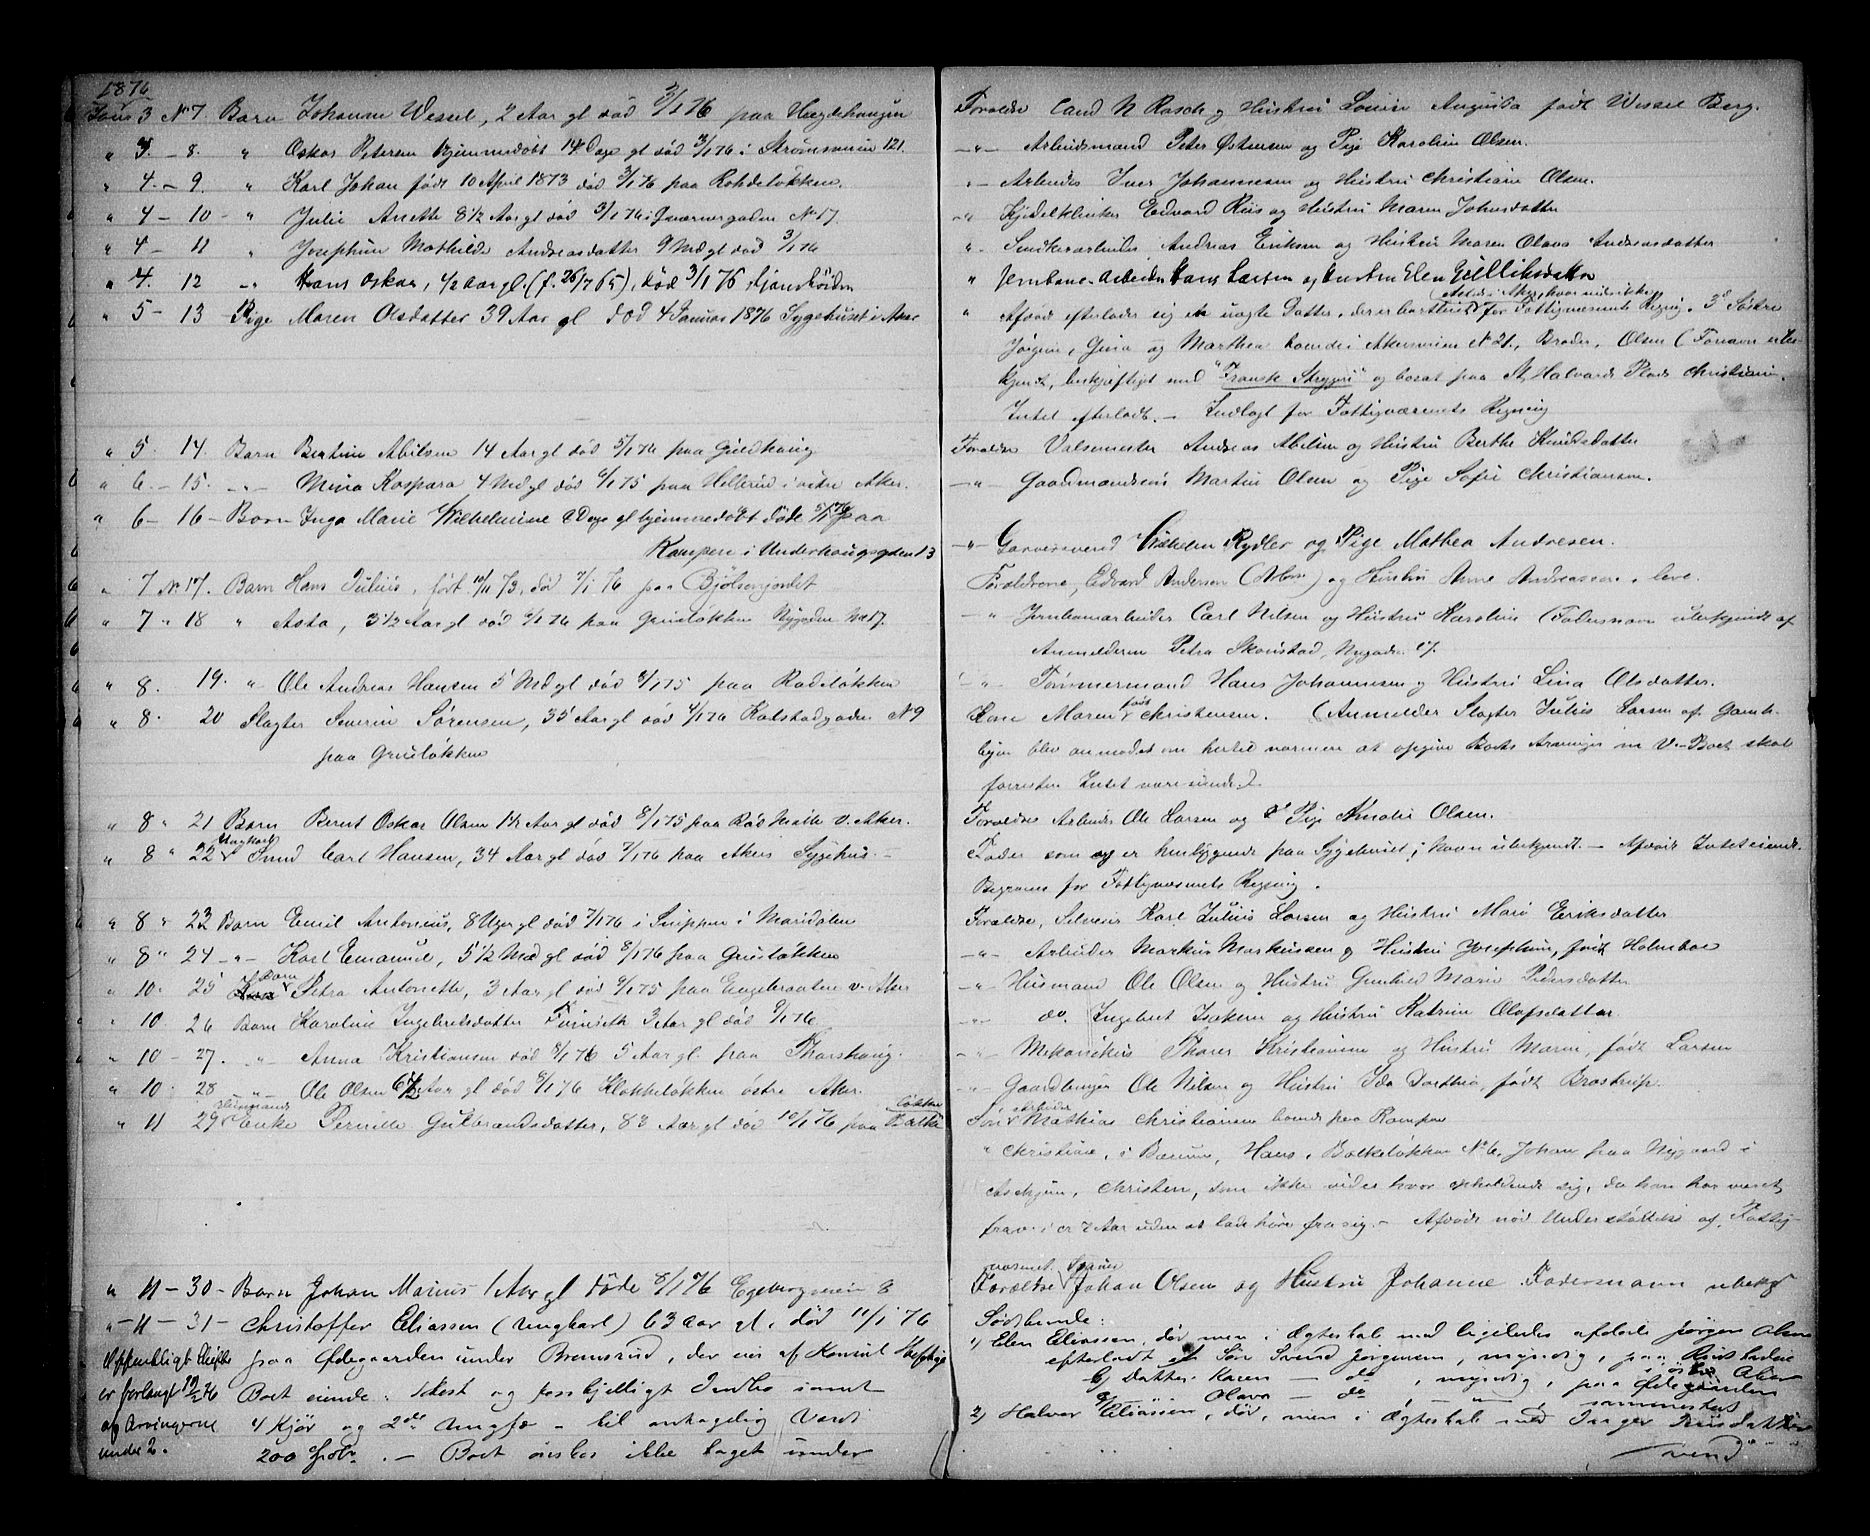 1876
Janr 3 No 7. Barn Johanne Wessel, 2 Aar gl død 2/1 76 paa Hægdehaugen
" 3. - 8. " Oskar Petersen hjemmedøbt 14 Dage gl død 3/1 76 i Strømsveien 121.
" 4. - 9. " Karl Johan født 10 April 1873 død 3/1 76 paa Rohdeløkken.
" 4 - 10 - " Julie Anette 8 1/2 Aar gl død 3/1 76 i Qværnergaden No 17.
" 4 - 11 " Josephine Mathilde Andreasdatter 9 Md gl død 3/1 76
" 4. 12 -"- Hans Oskar, 1/2 aar gl. død 3/1 76
" 5 - 13 Pige Maren Olsdatter 39 Aar gl død 4 Januar 1876 Sygehuset i Aker
" 5. 14. Barn Bertine Abilsen 14 Aar gl død 5/1 76 paa Guldhaug
" 6. - 15. -"- Mina Kaspara 4 Md gl død 6/1 75 paa Hellerud i østre Aker.
" 6 - 16 - Barn Inga Marie Wilhelmine Dage gl hjemmedøbt døde 5/1 76 paa
Kampen i Underhaugsgden 13
" 7 No 17. Barn Hans Julius, født 10/11 73, død 7/1 76 paa Bjølsenjordet
" 7 " 18 " Asta, 3 1/2 Aar gl død 6/1 76 paa Grüneløkken Nygaden No 17.
" 8. 19. " Ole Andreas Hansen 5 Md gl død 8/1 75 paa Rodeløkken
" 8. 20 Slagter Severin Sørensen, 35 Aar gl død 4/1 76 No 9
paa Grüneløkken
" 8 " 21 Barn Bernt Oskar Olsen 1 1/2 Aar gl død 8/1 75 paa V. Aker.
Ungkarl
" 8 " 22 Smed Carl Hansen, 34 Aar gl død 7/1 76 paa Akers Sygehus. -
" 8 " 23 Barn Emil Antonius, 8 Uger gl død 7/1 76 i Snippen i Maridalen
" 8 " 24 -"- Karl Emanuel, 5 1/2 Md gl død 8/1 76 paa Grüneløkken
Barn
" 10. 25 Petra Antonette, 3 Aar gl død 9/1 75 paa Engebraaten v. Aker
" 10 26 Barn Karoline Ingebretsdatter 3 Aar gl død 9/1 76
" 10 - 27. -"- Anna Kristiansen død 8/1 76 5 Aar gl. paa Thorshaug.
" 10. 28 -"- Ole Olsen 6 1/2 Aar gl død 8/1 76 Klokkeløkken østre Aker.
" 11 29 Enke Pernille Gulbrandsdatter, 83 Aar gl død 10/1 76 paa Bælke
løkken
" 11 - 30 - Barn Johan Marius 1 Aar gl døde 8/1 76 Egebergveien 8
" - 11 - 31 - Christoffer Eliassen (Ungkarl) 63 aar gl., død 11/1 76
Offentligt Skifte paa Ødegaarden under Bremsrud, der eies af Konsul
er forlangt 19/2 76 Boet eiende: Hest og forskjelligt Indbo samt
af Arvingerne 4 Kjør og 2de Ungfæ - til antagelig Værdi
under 2. 200 Spdr. - Boet ønskes ikke taget under
Forældre Cand N Rasch og Hustru Louise Augusta født Wessel Berg.
-"- Arbeidsmand Peter Østensen og Pige Karoline Olsen.
"- Arbeider Iver Johannesen og Hustru Christiane Olsen.
-"- Kjedelklinker Edvard Riis og Hustru Maren Johnsdatter
"- Snedkerarbeider Andreas Eriksen og Hustru Maren Olava Andreasdatter
" Jernbane-Arbeider Hans Larsen og Hustru Elen Gulliksdatter
" Afdøde efterlader sig en uægte Datter, der er bortleiet for Fattigvæsenets Regning. 3de Søstre
Jørgine, Gina og Marthea boende i Akersveien No 21., Broder, Olsen (Fornavn ube-
kjendt, beskjæftiget med "Fransk Strygeri" og boxat paa St Halvards Plads Christiania.
Intet efterladt. - Indlagt for Fattigvæsenets Regning
Forældre Valsemester Andreas Abilsen og Hustru Berthe Knudsdatter
-"- Gaardmandssøn Martin Olsen og Pige Sofie Christiansen.
-"- Garversvend Wilhelm Rydler og Pige Mathea Andresen.
Forældrene, Edvard Andersen og Hustru Anne Andreassen, leve.
-" Jernbanearbeider Carl Nilsen og Hustru Karoline (Fadersnavn ubekjendt af
Anmelderen Petra Skonstad, Nygaden 17.
-"- Tømmermand Hans Johannesen og Hustru Lina Olsdatter.
født
Kone Maren Christensen. (Anmelder Slagter Julius Larsen af Gamle-
byen blev anmodet om hertil nærmere at opgive Boets Arvinger m V - Boet skal
forresten Intet være eiende.)
Forældre Arbeider Ole Larsen og Pige Amalie Olsen.
Fader som og er henliggende paa Sygehuset; Navn ubekjendt. - Afdøde Intet eiende.
Begraves for Fattigvæsenets Regning.
Forældre, Selveier Karl Julius Larsen og Hustru Mari Eriksdatter
-"- Arbeider Markus Markussen og Hustru Josephine, født Holmboe
-"- Husmand Ole Olsen og Hustru Gunhild Marie Pedersdatter
-"- do. Ingebret Isaksen og Hustru Katrine Olafsdatter
-"- Mekanikus Thorer Kristiansen og Hustru Marie, født Larsen
-"- Gaardbruger Ole Nilsen og Hustru Ida Dorthea, født Brostrup.
Arbeider
Søn Mathias Christiansen boende paa Kampen
" Christian, i Bærum, Hans, Bælkeløkken No 6, Johan paa Nygaard i
Askjim, Christen, som ikke vides hvor opholdende sig, da han har været
frav. i ca 7 Aar uden at lade høre fra sig. - Afdøde nød Understøttelse af Fattig-
væsenet.
Forældre Johan Olsen og Hustru Johanne Fadersnavn ubekjt
Sødskende:
1) Elen Eliassen, død, men i Ægteskab med ligeledes afdøde Jørgen Olsen
efterladt a/ Søn Svend Jørgensen, myndig, paa
b/ Datter Karen - do, myndig, paa Ødegaarden
c/ Olava - do - " - sammesteds
2) Halvor Eliassen, død, men i Ægteskab med Inger
vend